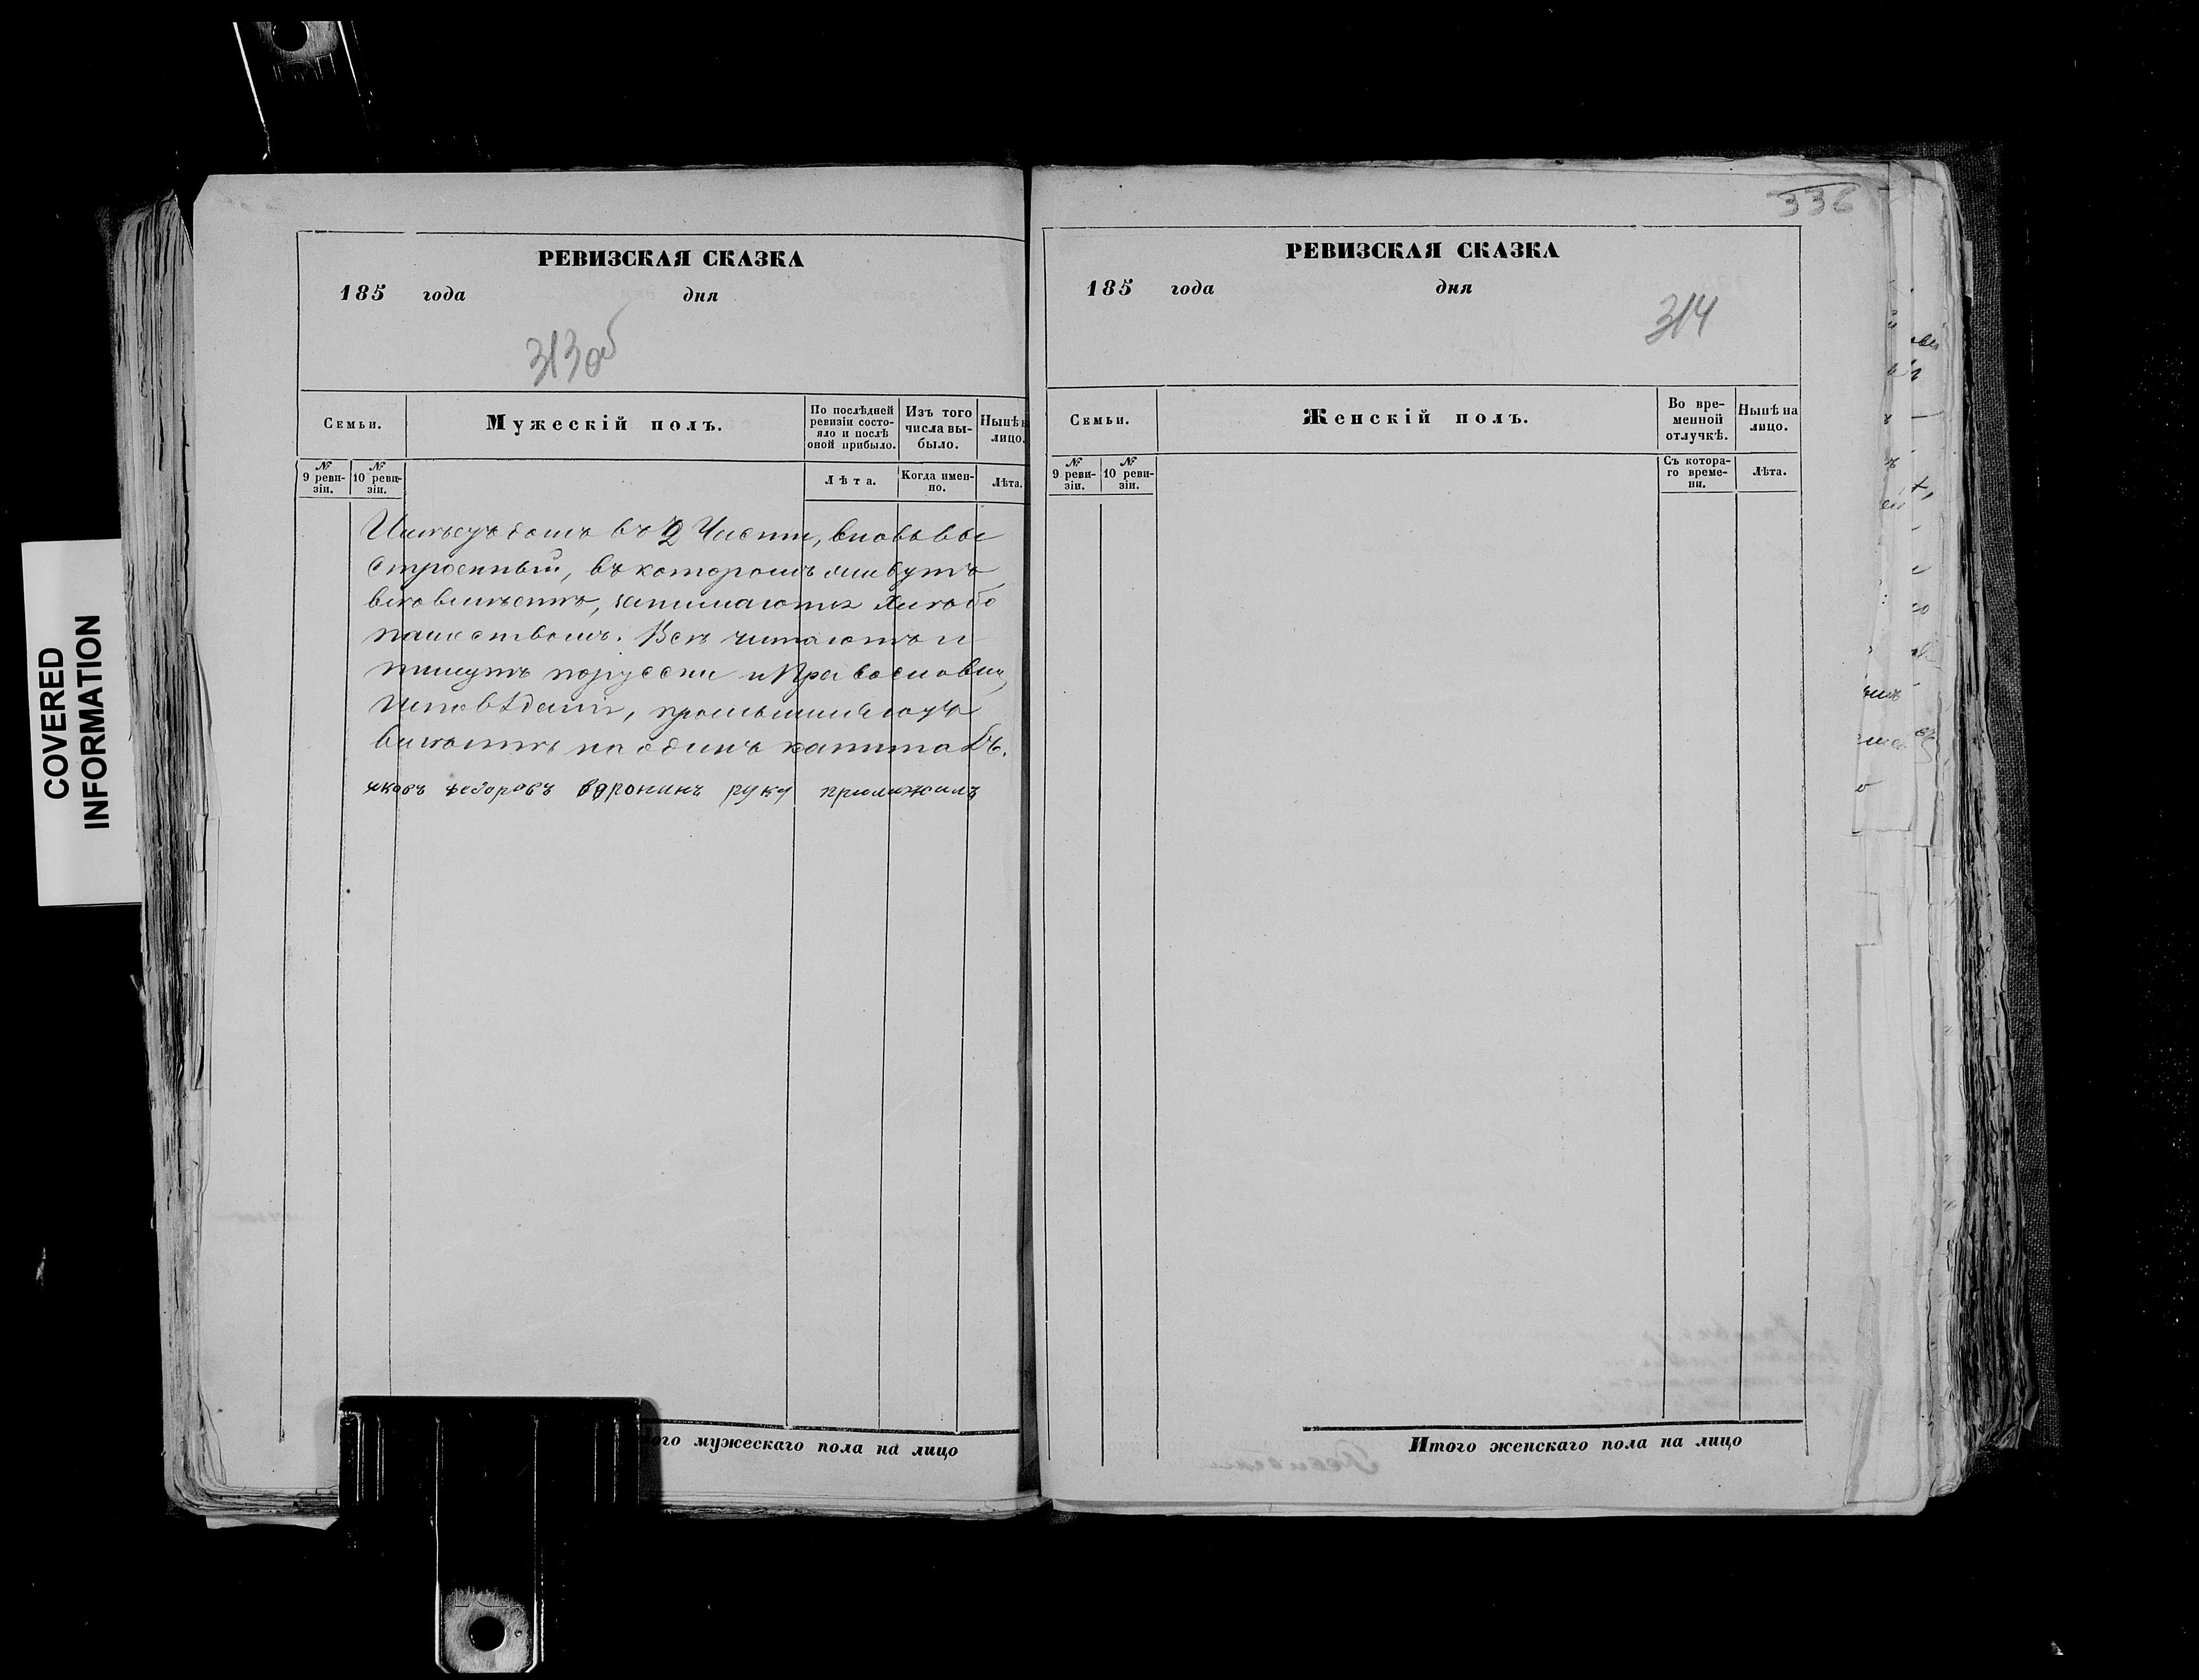 COVERED
INFORMATION
РЕВИЗСКАЯ СКАЗКА
185 года дня
313об
Семьи.
Мужескій полъ.
По послѣдней ревизіи состояло и послѣ оной прибыло.
Изъ того числа выбыло.
Нынѣ н
лицо.
№ 9 ревизіи.
№ 10 ревизіи.
Лѣта.
Когда именно.
Лѣта.
Имѣетъ домъ въ 2 Части, вновь вы
строенный, въ которомъ живутъ
всѣ вмѣстѣ, занимаются хлѣбо
пашествомъ. Всѣ читаютъ и
пишутъ порусски и Православн
Исповѣданія, промышляютъ
вмѣстѣ на одинъ капиталъ.
яковъ федоровъ воронинъ руку приложилъ
ого мужескаго пола на лицо
336
РЕВИЗСКАЯ СКАЗКА
185 года дня
314
Семьи.
Женскій полъ.
Во временной отлучкѣ.
Нынѣ на лицо.
№ 9 ревизіи.
№ 10 ревизіи.
Съ котораго времени.
Лѣта.
Итого женскаго пола на лицо